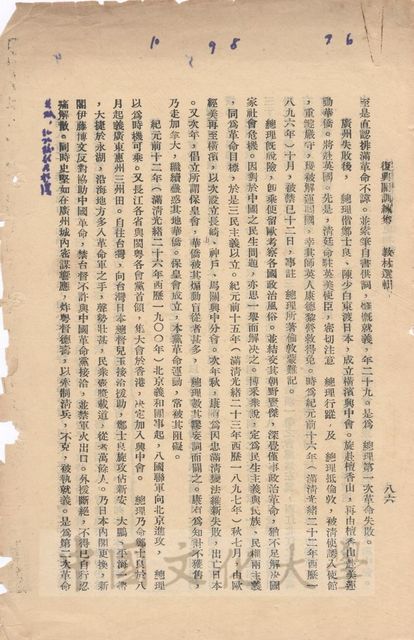 10 98 76
復興關訓練集 教材選輯 八六
至是直認排滿革命不諱。並索筆自書供詞，慷慨就義，年二十九。是爲 總理第一次革命失敗。
廣州失敗後， 總理偕鄭士良，陳少白東渡日本，成立橫濱興中會。旋赴檀香山，再由檀香山赴美運
動華僑。將赴英國。先是，清廷命駐英美使臣，密切注意 總理行蹤，及 總理抵倫敦，被清使誘入使館
，重遭嚴守，幾被解運回國，幸其師英人康德黎營救得免。時爲紀元前十六年（滿清光緒二十二年西歷一
八九六年）十月，被禁已十二日，事詳 總理所著倫敦蒙難記。
總理旣脫險，卽乘便留歐考察各國政治風俗。並結交其朝野賢傑，深覺僅事政治革命，猶不足解決國
家社會危機。因對於中國之民生問題，亦思一舉而解決之。博采衆說，定爲民生主義與民族，民權兩主義
，同爲革命目標，於是三民主義以立。紀元前十五年（滿清光緒二十三年西歷一八九七年）秋七月，由歐
經美再至橫濱，以次設立長崎，神戶，馬關興中分會。次年秋，康有爲因忠滿清變法維新失敗，出亡日本
。又次年，倡立所謂保皇會，華僑被其煽動盲從者甚多， 總理斥其謬妄調而闢之。康有爲知計不獲售，
乃走加拿大，繼續蠱惑其地華僑，「保皇會」成立。本黨革命運動，常被其阻礙。
紀元前十二年（滿清光緒二十六年西歷一九〇〇年）北京義和團事起，八國聯軍向北京進攻， 總理
以爲時機可乘。又長江各省與閩粵各會黨首領，集大會於香港，决定加入興中會。 總理乃命鄭士良於八
月起義廣東惠州三州田。自往台灣，向台灣日本總督兒玉接洽援助，鄭士良旋攻佔新安，大鵬，平海等地
，大捷於永湖，沿海地方多入革命軍之手，聲勢壯甚，民衆壺漿載道，從者萬餘人。乃日本內閣更換，新
閣伊藤博文反對協助中國革命，禁台督不許與中國革命黨接洽，並禁軍火出口。外援斷絕，不得已自行忍
痛解散。同時史堅如在廣州城內密謀響應，炸粵督德壽，以牽制清兵，不克，被執就義。是爲第二次革命
中國文化大學